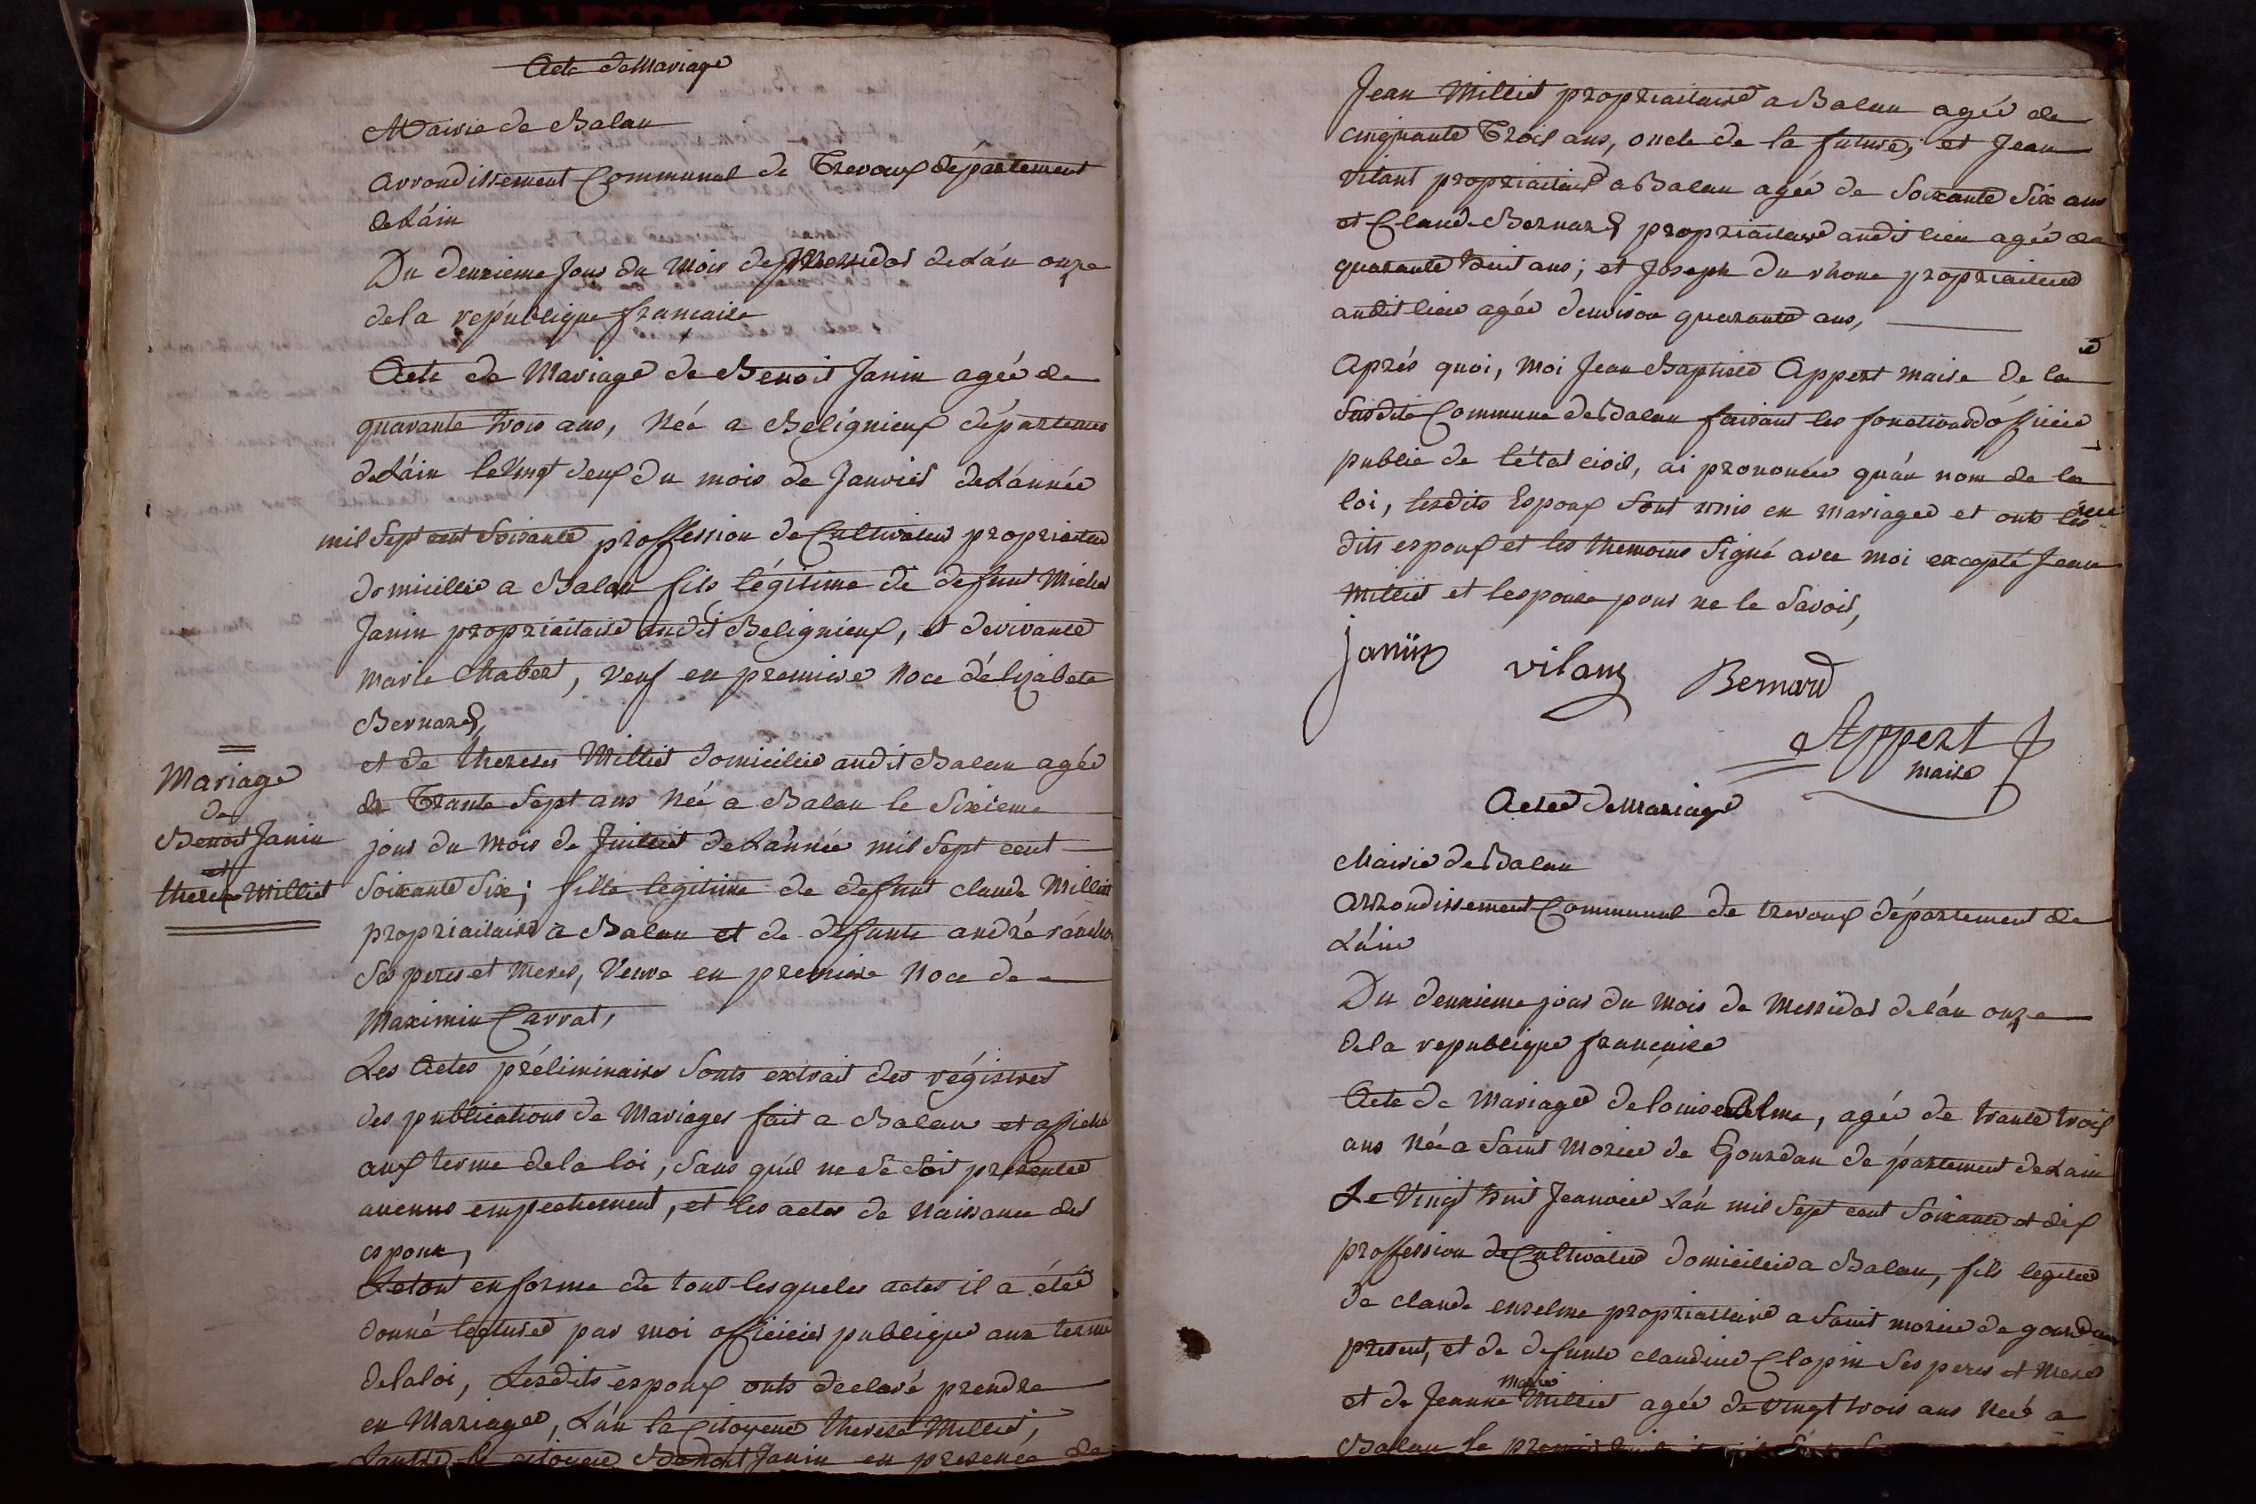 Acte de Mariage
Mairie de Balan
arrondissement Communal de Trevoux département
de L'áin
Du deuxieme Jour du Mois de Messidor de L'án onze
de la république francaise
Acte de Mariage de Benoit Janin agée de
quarante trois ans, Née a Beligneux départemen
de L'áin le Vingt deux du mois de Janvier de L'année
mil Sept cent Soixante proffession de Cultivateur propriaitaire
domicillié a Balan fils légitime de defunt Michel
Janin propriaitaire audit Beligneux, et de vivante
Marie Chabert, Veuf en premiere Noce d'élizabete
Bernard,
et de Therese Milliet domiciliée audit Balan agée
de Trante Sept ans Née a Balan le Sixieme
jour du Mois de Juillet de L'année mil Sept cent
Soixante Six; fille légitime de defunt claude Milliet
propriaitaire a Balan et de defunte andré
Ses peres et Meres, Veuve en premiere Noce de
Maximin Carrat,
Mariage
de
Benoit Janin
et
therese Milliet
Les Actes préliminaires Sonts extrait des régistres
des publications de Mariages fait a Balan et affiché
aux terme de la loi, Sans qu'il ne Se Soit presentée
aucuns empechement, et les actes de Naissance des
epoux,
Le tout en forme de tous lesqueles actes il a étée
donné lectured par moi officicier publique aux terme
de la loi, Lesdits espoux onts declaré prendre
en Mariage, L'án la Citoyene therese Milliet,
L'autre le citoyen Benoit Janin en presence de
Jean Milliet propriaitaire a Balan agée de
cinquante Trois ans, oncle de la future, et Jean
vilant propriaitaire a Balan agée de Soixante Six ans
et Claude Bernard propriaitaire audit lieu agée de
quarante huit ans; et Joseph du rhone propriaitaire
audit lieu agée d'environ quarante ans,
Aprés quoi, Moi Jean Baptiste Appert maire de la
Susdite Commune de Balan faisant les fonctions d'officier
public de l'état civil, ai prononcée qu'au nom de la
loi, lesdits Espoux Sont unis en mariage et onts les
dits espoux et les themoins Signé avec moi excepté Jean
Milliet et l'espouse pour ne le Savoir,
janin vilant Bernard
Appert
maire
Actee de Mariage
Mairie de Balan
Arrondissement Communal de trevoux département de
L'áin
Du deuxieme jour du Mois de Messidor de l'án onze
de la republique francaise
Acte de Mariage de louis enselme, agée de trante trois
ans Née a Saint Morice de Gourdan département de L'ain
Le Vingt huit Jeanvier L'án mil Sept cent Soixante et dix
proffession de Cultivateur domicilié a Balan, fils legitime
de claude enselme propriaitaire a Saint morice de gourdan
present, et de defunte claudine Clopin Ses peres et Mere
et de Jeanne Marie Milliet agée de Vingt trois ans Née a
Balan le premier